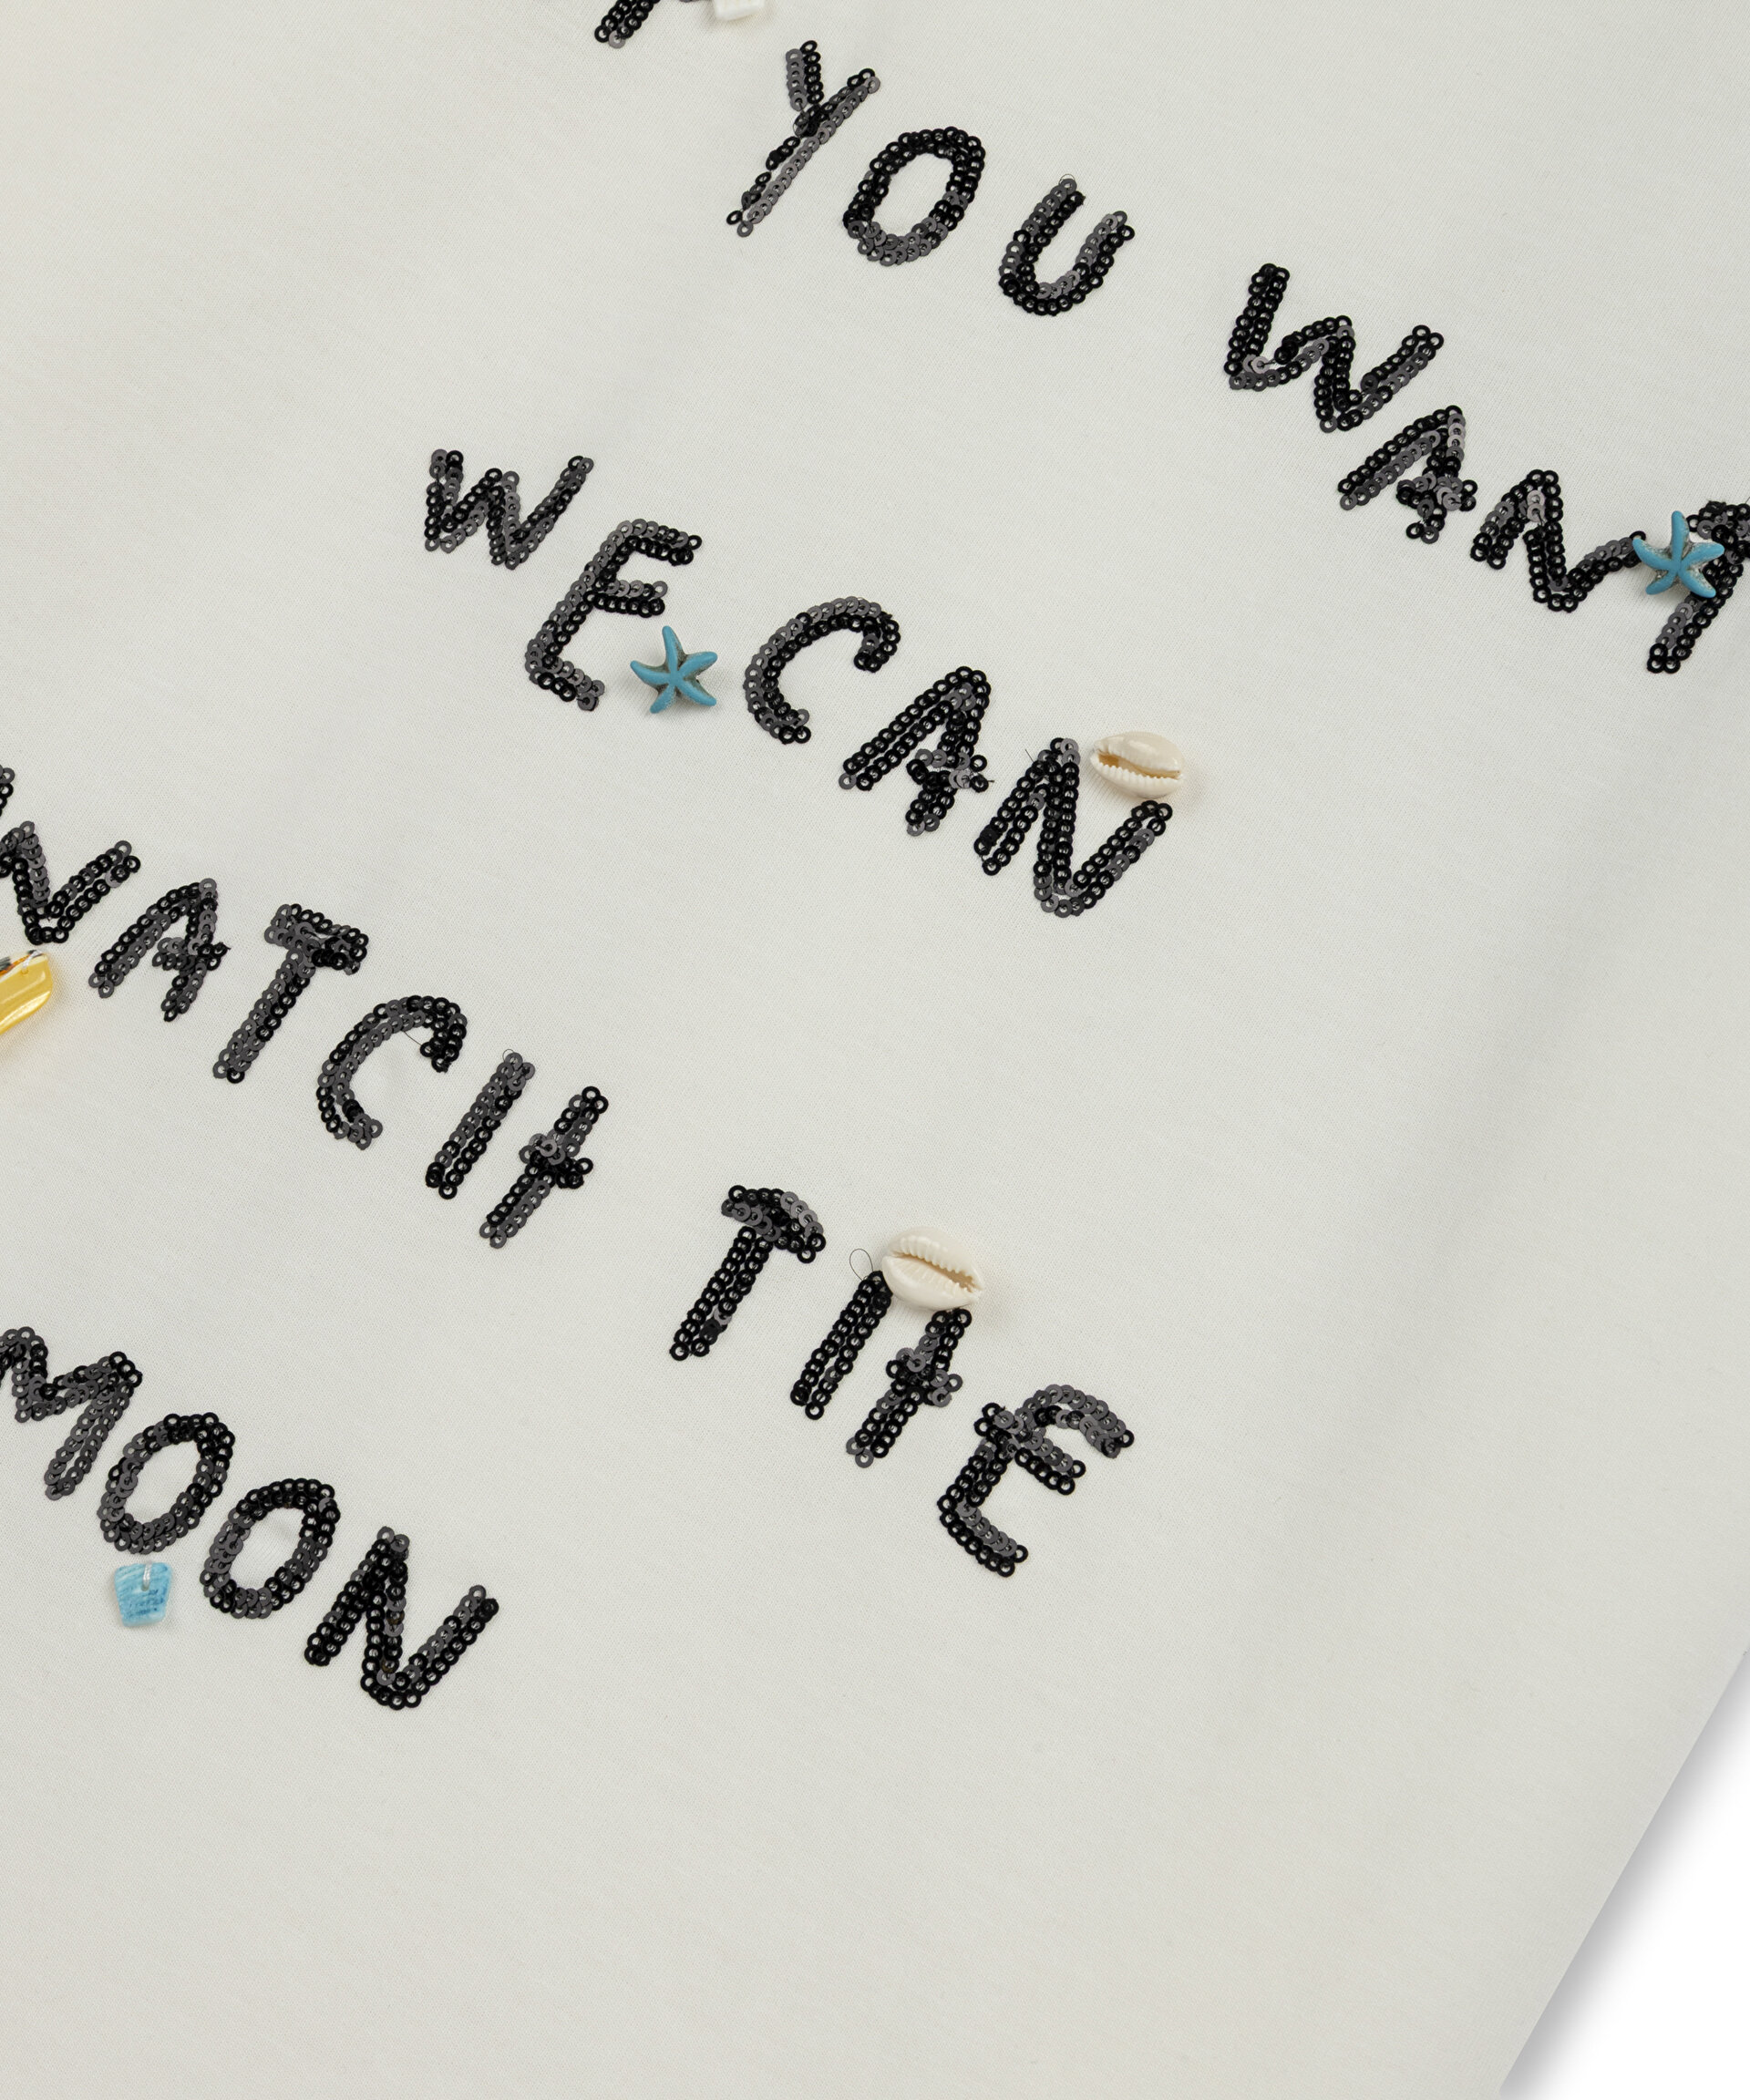 YOU WANT
WE CAN
WATCH THE
MOON